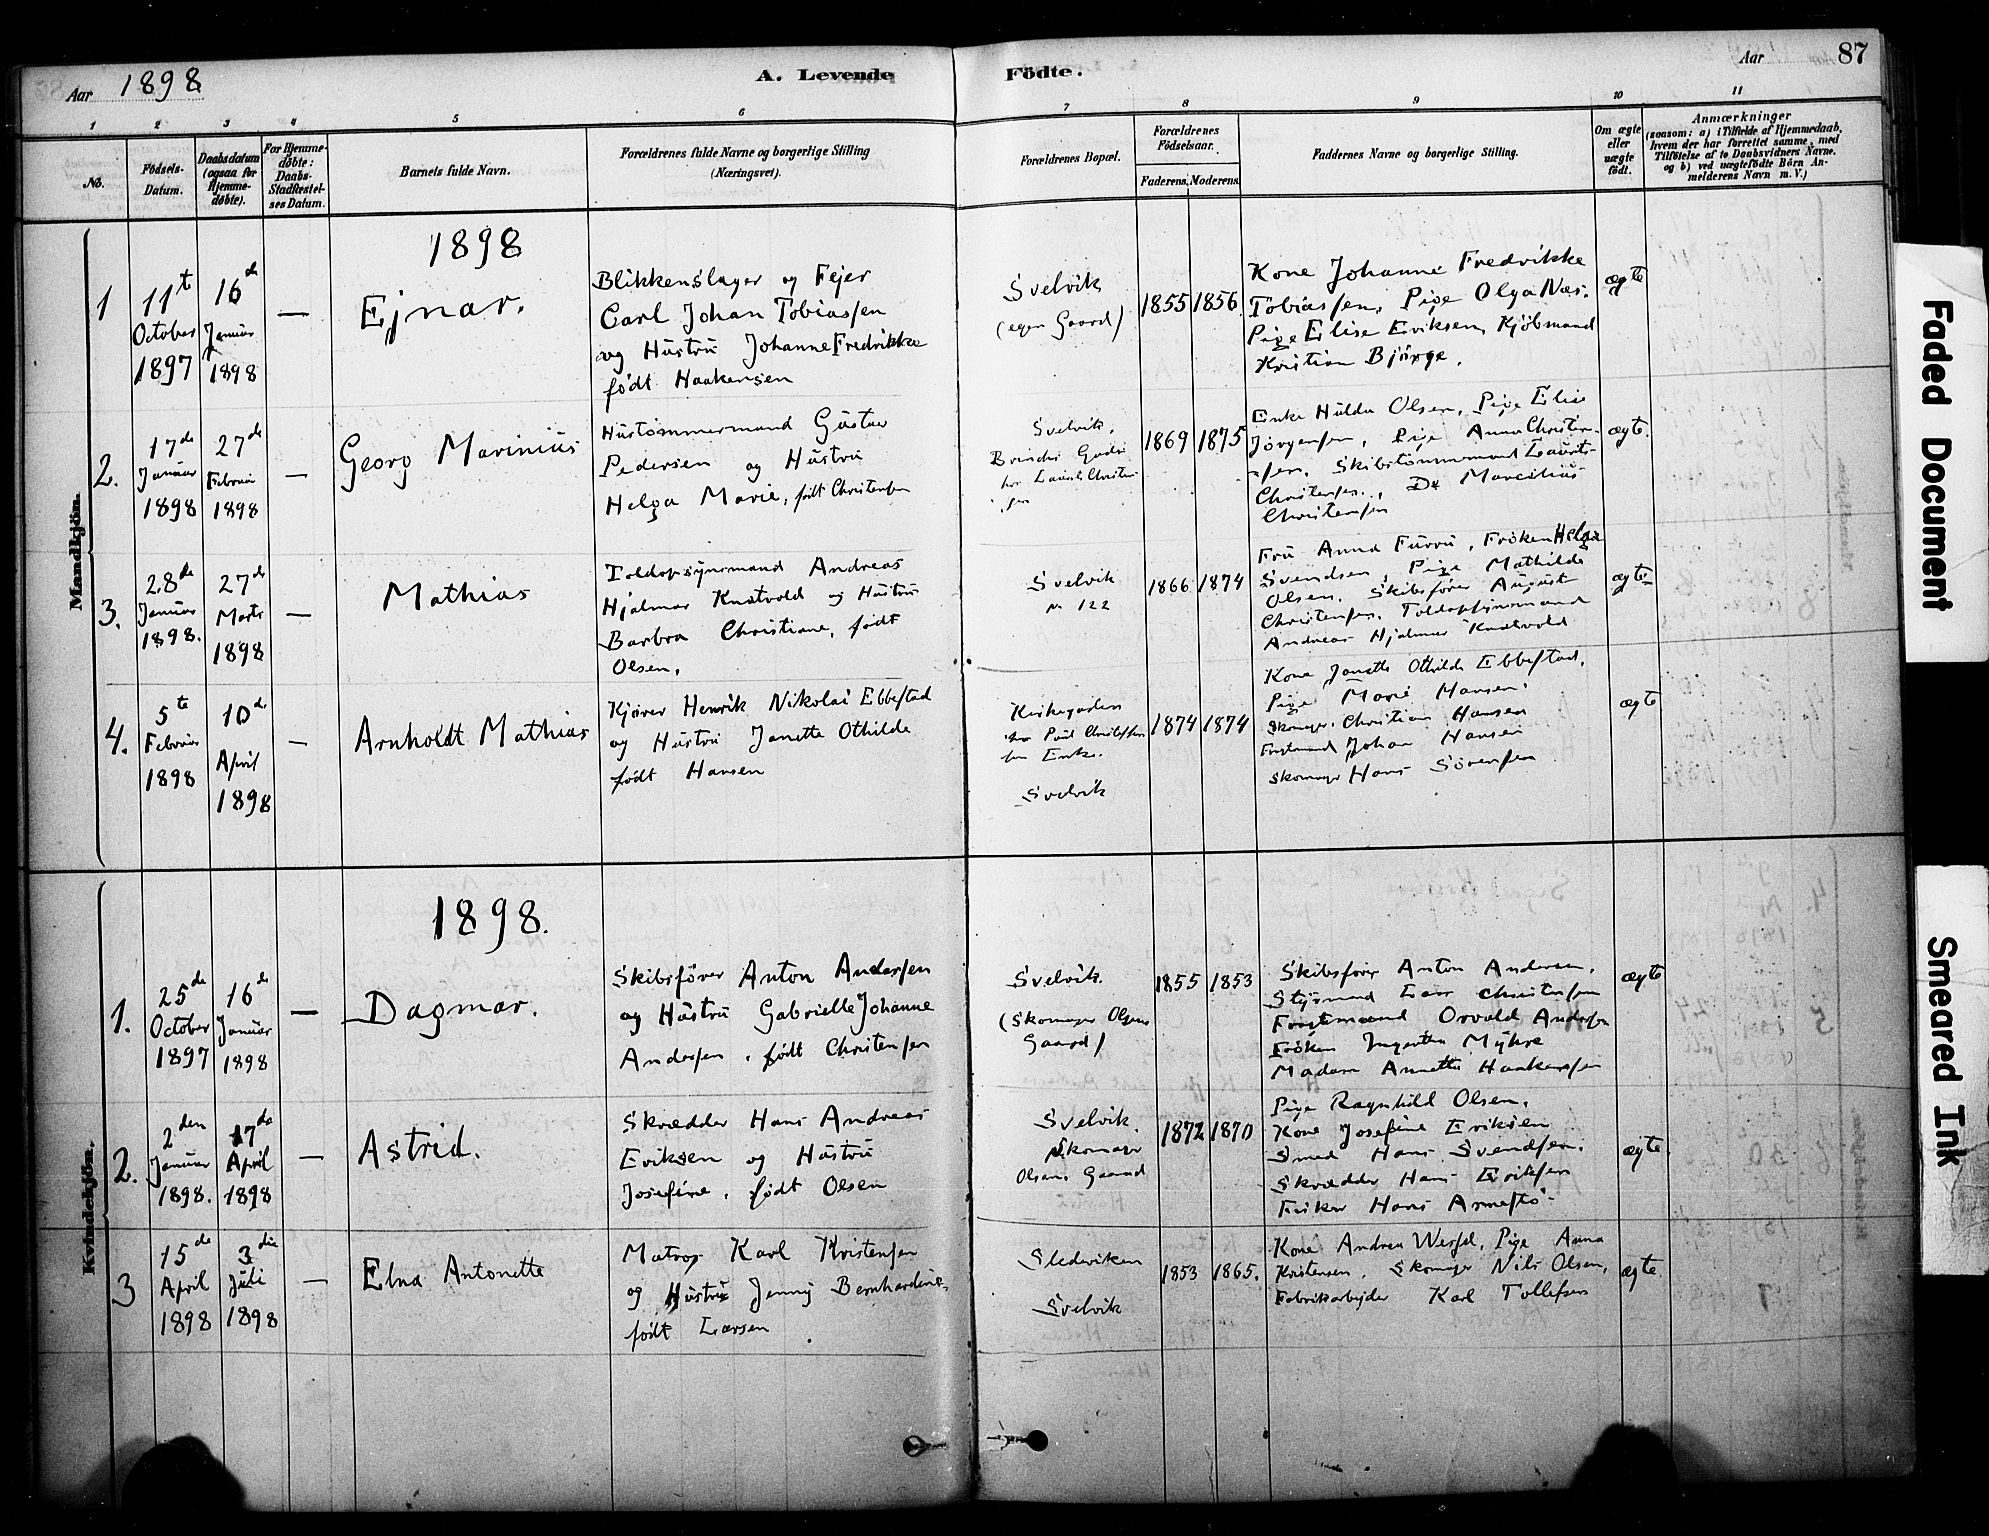 Aar 1898
A. Levende Fødte.
Aar 87
1 2 3 4 5 6 7 8 9 10 11
No.
Fødsels-
Datum.
Daabsdatum
(ogsaa for
Hjemme-
døbte).
For Hjemme-
døbte:
Daabs-
Stadfæstel-
ses Datum.
Barnets fulde Navn.
Forældrenes fulde Navne og borgerlige Stilling
(Næringsvei).
Forældrenes Bopæl.
Forældrenes
Fødselsaar.
Faderens. Moderens.
Faddernes Navne og borgerlige Stilling.
Om ægte
eller
uægte
født.
Anmærkninger
(saasom: a) i Tilfælde af Hjemmedaab,
hvem der har forrettet samme, med
Tilføielse af to Daabsvidners Navne,
og b) ved uægtefødte Børn An-
melderens Navn m. V.)
Mandkjøn.
1898
1
11t
October
1897
16de
Januar
1898
—
Ejnar.
Blikkenslager og Fejer
Carl Johan Tobiassen
og Hustru Johanne Fredrikke
født Haakensen
Svelvik
(egen Gaard)
1855 1856.
Kone Johanne Fredrikke
Tobiassen, Pige Olga Næs.
Pige Elise Eriksen, Kjøbmand
Kristian Bjørge.
ægte
2.
17de
Januar
1898
27de
Februar
1898
—
Georg Marinius
Hustømmermand Gustav
Pedersen og Hustru
Helga Marie, født Christensen
Svelvik.
hos Laurits Christen
sen
1869 1875
Enke Hulda Olsen, Pige Elise
Jørgensen, Pige Anna Christen-
sen, Skibstømmermand Laurits
Christensen, Do Marcilius
Christensen
ægte.
3.
28de
Januar
1898.
27de
Marts
1898
—
Mathias
Toldopsynsmand Andreas
Hjalmar Knatvold og Hustru
Barbra Christiane, født
Olsen.
Svelvik
No 122
1866 1874
Fru Anna Furru, Frøken Helga
Svendsen, Pige Mathilde
Olsen, Skibsfører August
Christensen, Toldopsynsmand
Andreas Hjalmar Knatvold
ægte
4.
5te
Februar
1898
10de
April
1898
—
Arnholdt Mathias
Kjører Henrik Nikolai Ebbestad
og Hustru Janette Othilde
født Hansen
Kirkegaden
hos Paul Christoffer
sen Enke.
Svelvik
1874 1874
Kone Janette Othilde Ebbestad,
Pige Marie Hansen
Skomager Christian Hansen
Johan Hansen
Skomager Hans Sørensen
ægte
Kvindekjøn.
1898.
1.
25de
October
1897
16de
Januar
1898
—
Dagmar.
Skibsfører Anton Andersen
og Hustru Gabrielle Johanne
Andersen, født Christensen
Svelvik.
(Skomager Olsens
Gaard)
1855 1853
Skibsfører Anton Andersen,
Styrmand Lars Christensen
Osvald Andersen
Frøken Ingertha Myhre
Madam Annette Haakensen
ægte
2.
2den
Januar
1898.
17de
April
1898
—
Astrid.
Skrædder Hans Andreas
Eriksen og Hustru
Josefine, født Olsen
Svelvik.
Skomager
Olsens Gaard
1872 1870
Pige Ragnhild Olsen,
Kone Josefine Eriksen
Smed Hans Svendsen.
Skrædder Hans Eriksen
Fisker Hans
ægte
3
15de
April
1898
3die
Juli
1898
—
Elna Antonette
Matros Karl Kristensen
og Hustru Jenny Bernhardine
født Larsen
Sledeviken
Svelvik
1853 1865.
Kone Andrea Wessel, Pige Anna
Kristensen, Skomager Nils Olsen,
Fabrikarbejder Karl Tollefsen
ægte
Faded Document
Smeared Ink